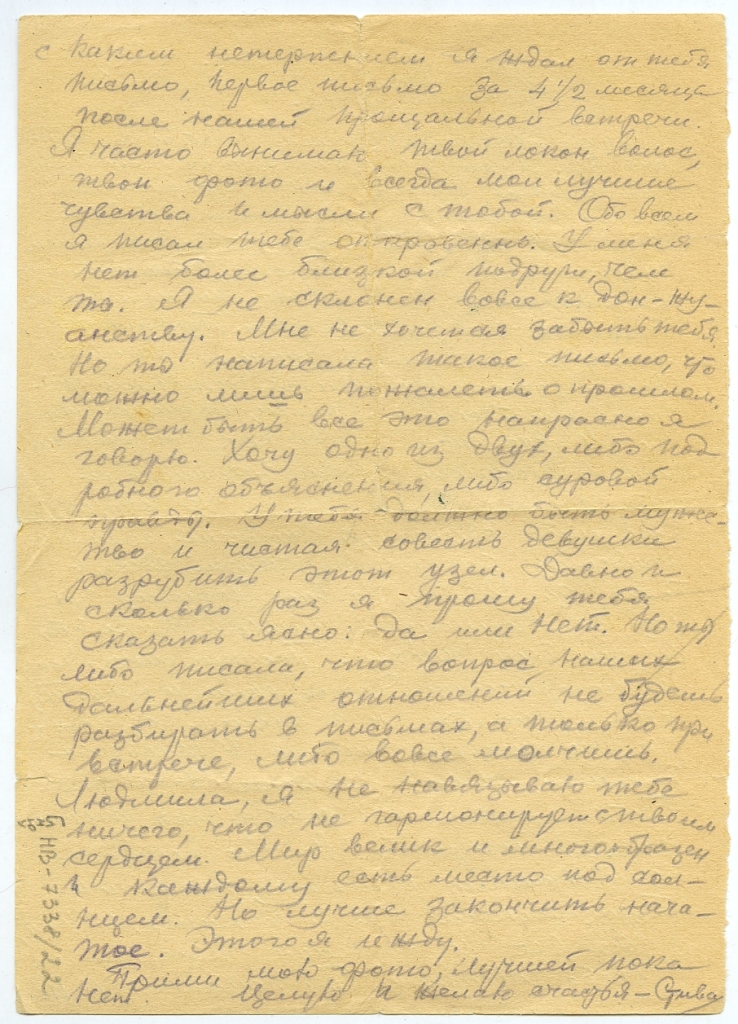 с каким нетерпением я ждал от тебя
письмо, первое письмо за 4 1/2 месяца
после нашей прощальной встречи.
Я часто вынимал твой локон волос,
твои фото и всегда мои лучшие
чувства и мысли с тобой. Обо всем
я писал тебе откровенно. У меня
нет более близкой подруги, чем
ты. Я не склонен вовсе к дон-жу-
анству. Мне не хочется забыть тебя.
Но ты написала такое письмо, что
можно лишь пожалеть о прошлом.
Может быть все это напрасно я
говорю. Хочу одно из двух, либо под
робного объяснения, либо суровой
правды. У тебя должно быть муже-
тво и чистая совесть девушки
разрубить этот узел. Давно и
сколько раз я прошу тебя
сказать ясно: да или нет. Но ты
либо писала, что вопрос наших
дальнейших отношений не будешь
разбирать в письмах, а только при
встрече, либо вовсе молчишь.
Людмила, я не навязываю тебе
ничего, что не гармонирует с твоим
сердцем. Мир велик и многообразен
и каждому есть место под сол-
нцем. Но лучше закончить нача-
тое. Этого я и жду.
Прими мою фото, лучшей пока
нет. Целую и желаю счастья – Стива
НВ-7338/22